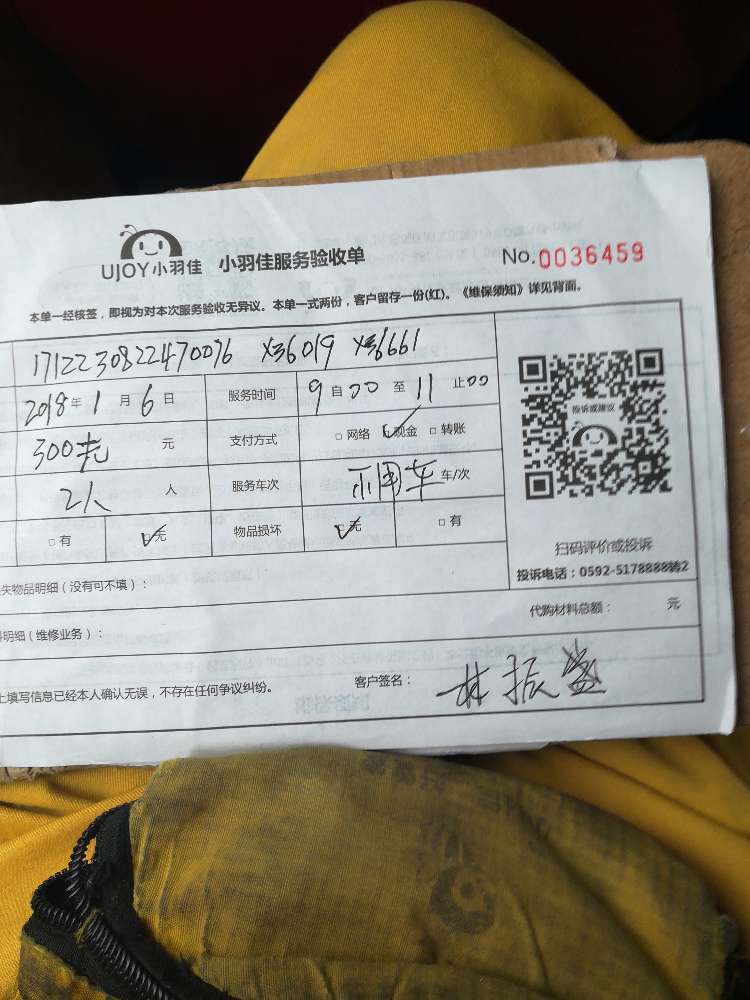 UJOY小羽佳 小羽佳服务验收单 No.0036459
本单一经核签，即视为对本次服务验收无异议。本单一式两份，客户留存一份(红)。《维保须知》详见背面。
1712230822470076
2018年1月6日 服务时间 9自00至11止00
300 元 支付方式 □网络 □现金 □转账
投诉或建议
2人 人 服务车次 车/次
□有 □无 物品损坏 □无 □有
扫码评价或投诉
投诉电话：0592-5178888转2
失物品明细（没有可不填）：
代购材料总额： 元
明细（维修业务）：
上填写信息已经本人确认无误，不存在任何争议纠纷。 客户签名： 林振盛